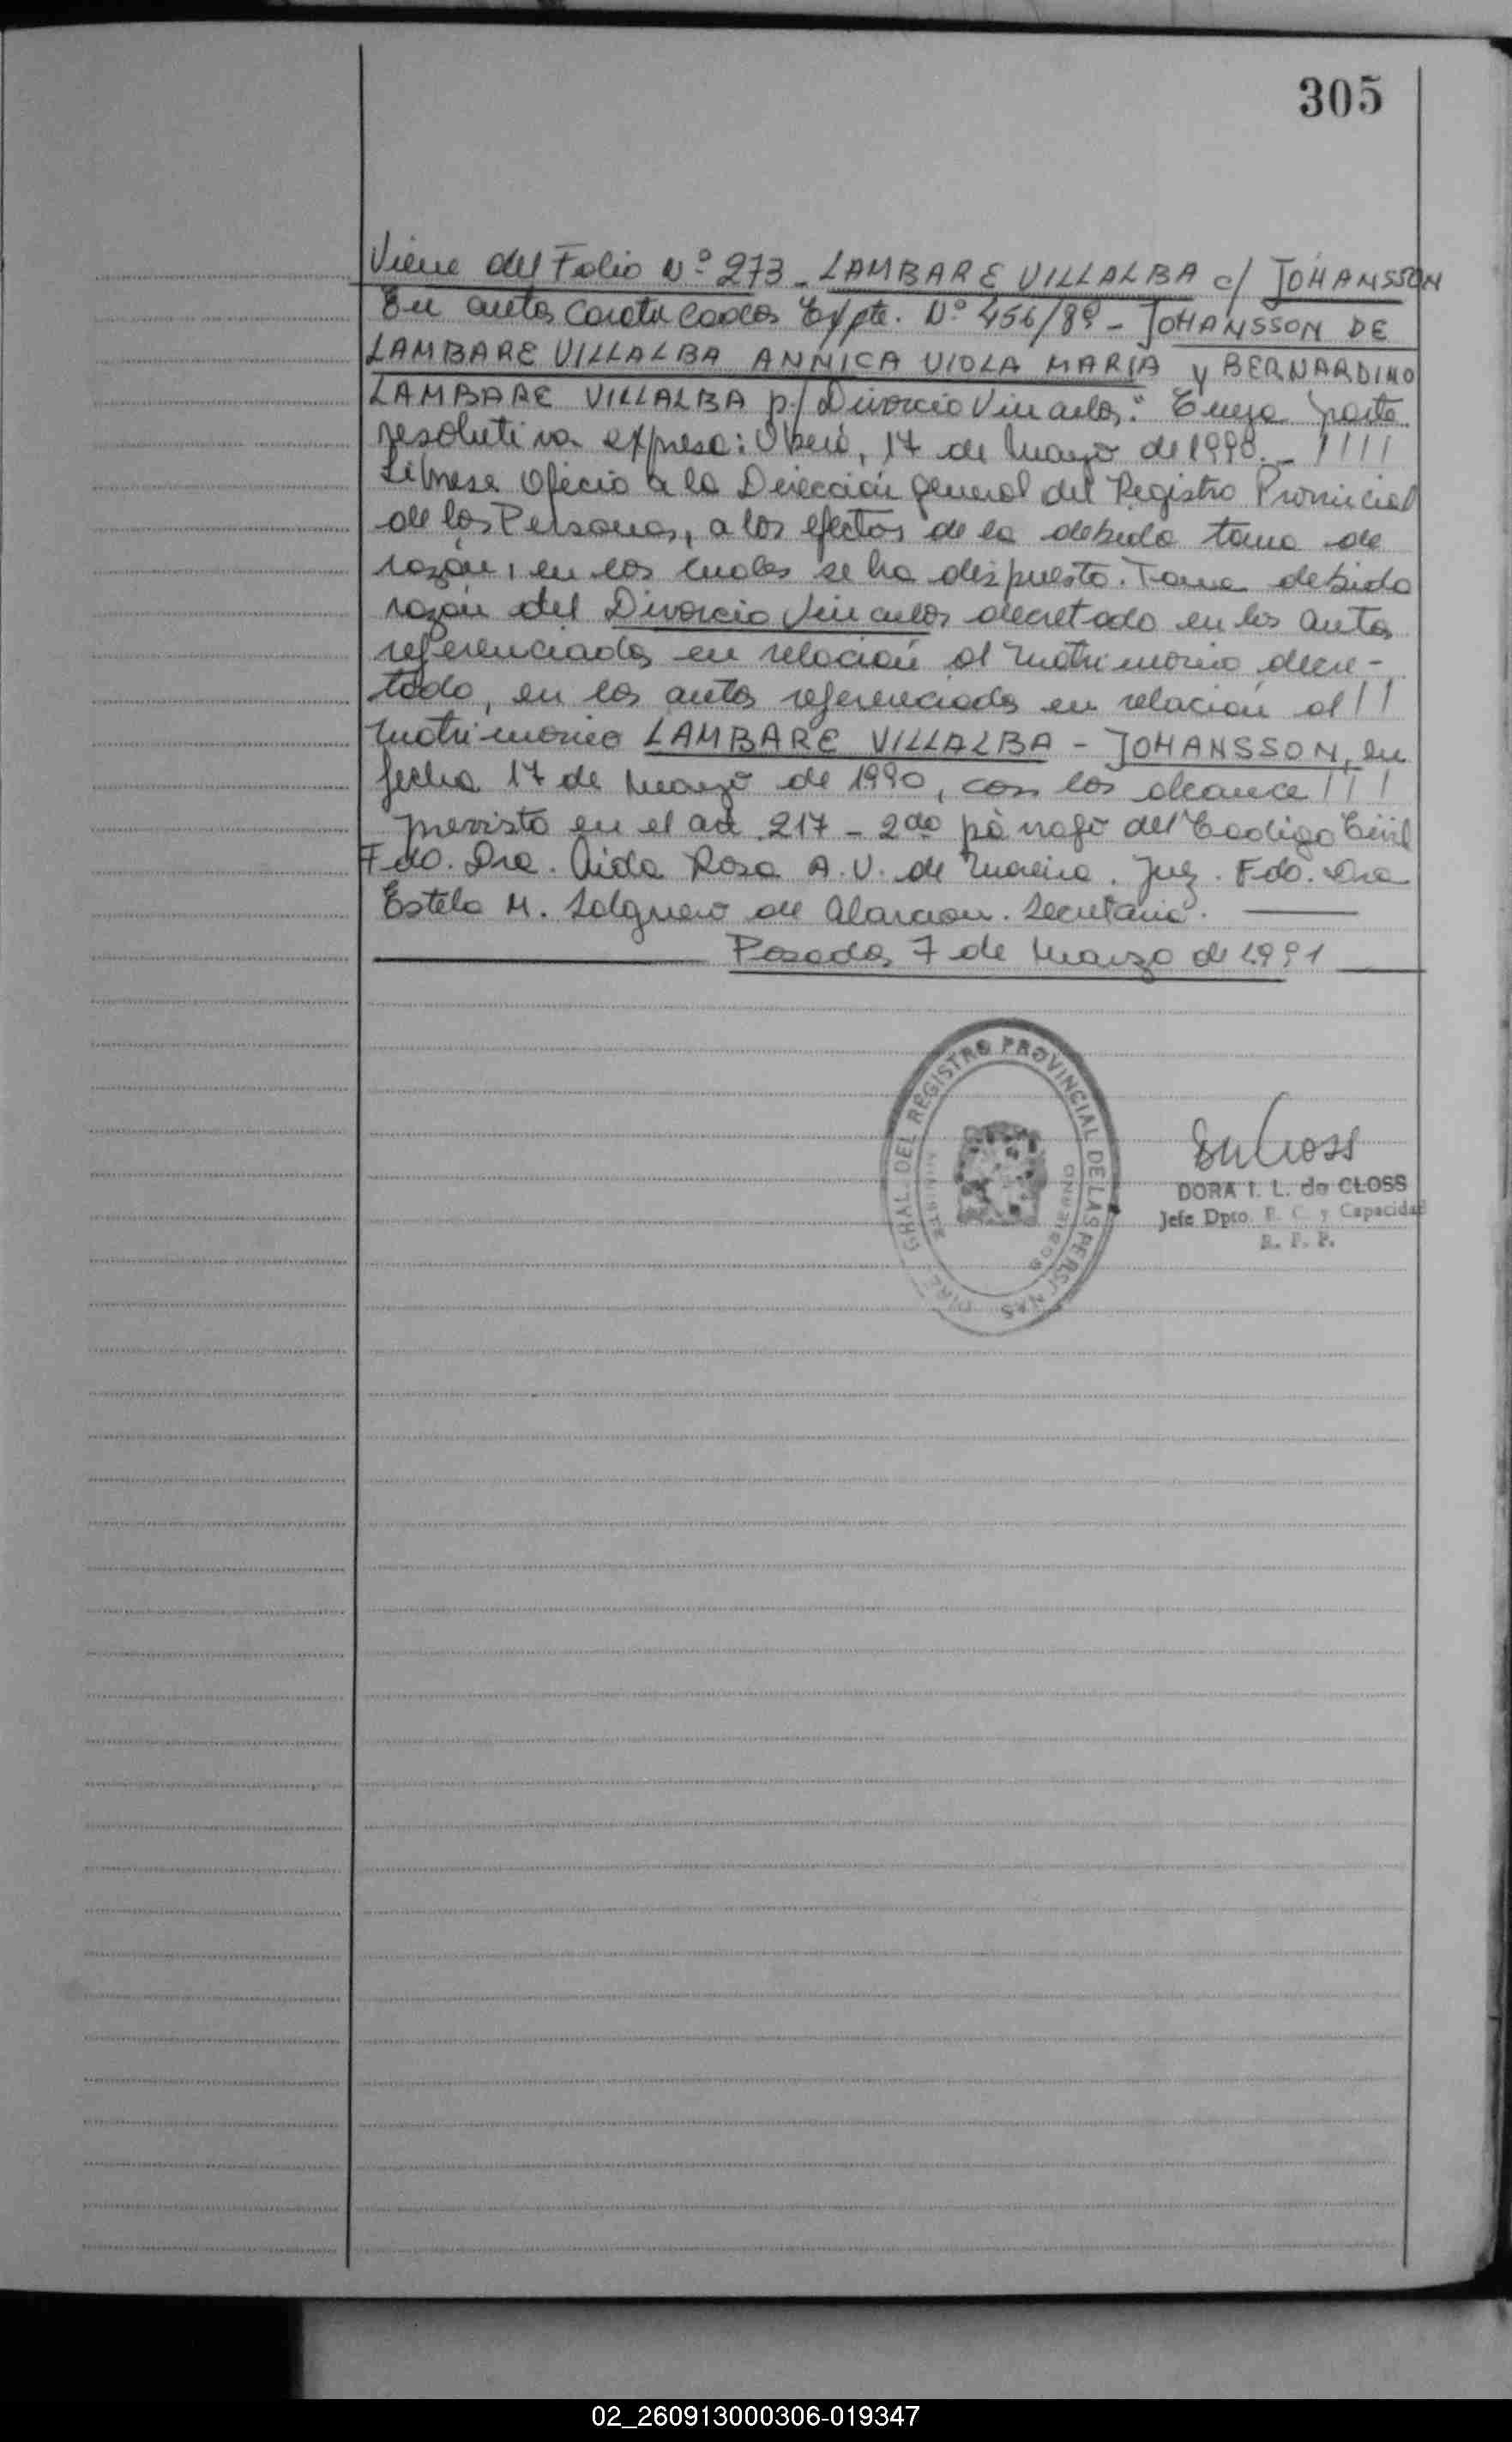 305
Viene del Folio Nº 273 - LAMBARE VILLALBA c/ JOHANSSON
En autos Caratulados Expte. Nº 456/89 - JOHANSSON DE
LAMBARE VILLALBA ANNICA VIOLA MARIA y BERNARDINO
LAMBARE VILLALBA p/ Divorcio Vincular." Cuya parte
resolutiva expresa: Oberá, 17 de Mayo de 1990. - ////
Líbrese Oficio a la Dirección general del Registro Provincial
de las Personas, a los efectos de la debida toma de
razón, en los cuales se ha dispuesto. Tome debida
razón del Divorcio Vincular decretado en los autos
referenciados en relación al matrimonio decre-
tado, en los autos referenciados en relación al //
matrimonio LAMBARE VILLALBA - JOHANSSON, en
fecha 17 de Mayo de 1990, con los alcance ///
previsto en el art 217 - 2do párrafo del Codigo Civil
Fdo. Dra. Aida Rosa A. V. de Moreira. Juez. Fdo. Dra
Estela M. Salguero de Alarcon. Secretaria.
Posadas, 7 de Marzo de 1991
DIRE. GRAL. DEL REGISTRO PROVINCIAL DE LAS PERSONAS
MISIONES
DORA I. L. de CLOSS
Jefe Dpto. E. C. y Capacidad
R. P. P.
02_260913000306-019347